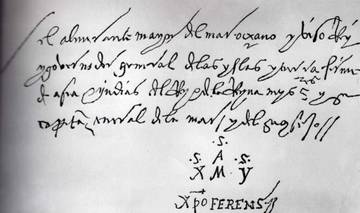 el almirante mayor del mar oçeano y viso Rey
y governador general de las yslas y tierra firme
de asia e yndias del Rey e de la Reyna mys S y su
capitan general de la mar y del consejo
.S.
.S. A .S.
X M y
Xpo FERENS